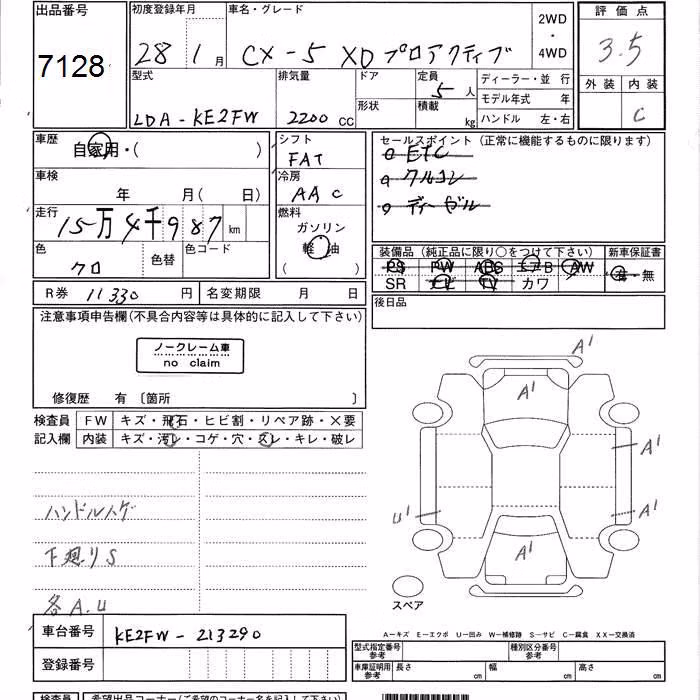 出品番号
7128
初度登録年月
28 1月
車名・グレード
CX-5 XD プロアクティブ
2WD
・
4WD
評価点
3.5
外装 内装
C
型式
LDA-KE2FW
排気量
2200 CC
ドア
形状
定員
5人
積載
kg
ディーラー・並行
モデル年式 年
ハンドル 左・右
車歴
自家用・( )
車検
年 月( 日)
走行
15万4千987 km
色
クロ
色替
色コード
シフト
FAT
冷房
AAC
燃料
ガソリン
軽油
( )
セールスポイント(正常に機能するものに限ります)
o ETC
o クルコン
o ディーゼル
装備品(純正品に限り○をつけて下さい)
新車保証書
PS PW ABS エアB AW
SR ナビ TV カワ
有・無
R券 11330 円
名変期限 月 日
後日品
注意事項申告欄(不具合内容等は具体的に記入して下さい)
ノークレーム車
no claim
修復歴 有〔箇所 〕
検査員
記入欄
FW キズ・飛石・ヒビ割・リペア跡・X要
内装 キズ・汚レ・コゲ・穴・スレ・キレ・破レ
ハンドルハゲ
下廻りS
各A.U
A'
A'
A'
A'
U'
A'
スペア
車台番号
KE2FW-213290
登録番号
A－キズ E－エクボ U－凹み W－補修跡 S－サビ C－腐食 XX－交換済
型式指定番号
参考
種別区分番号
参考
車庫証明用
参考
長さ cm
幅 cm
高さ cm
検査員
希望出品コーナー(ご希望のコーナー名を記入下さい)